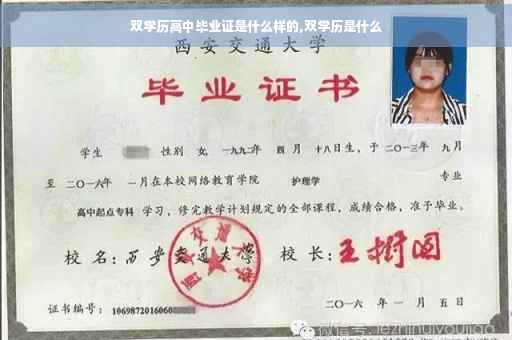 双学历高中毕业证是什么样的,双学历是什么
西安交通大学
毕业证书
学生 性别 女, 一九九二年 四 月 十八日生, 于 二〇一三年 九 月
至 二〇一六年 一月在本校网络教育学院 护理学 专业
高中起点专科 学习, 修完教学计划规定的全部课程, 成绩合格, 准予毕业。
校 名: 西安交通大学 校 长: 王树国
西安交通大学
证书编号: 1069872016060
二〇一六 年 一 月 五 日
微信号: lezhihuiyoujiao